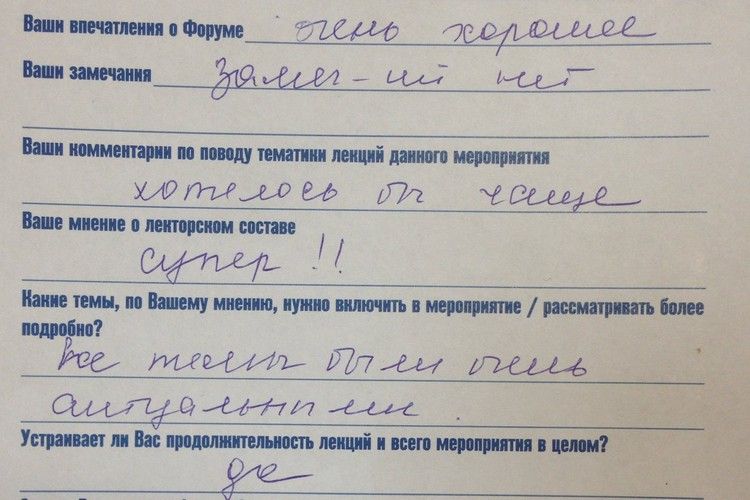 Ваши впечатления о Форуме очень хорошее
Ваши замечания Замеч-ий нет
Ваши комментарии по поводу тематики лекций данного мероприятия
хотелось бы чаще
Ваше мнение о лекторском составе
супер!!
Какие темы, по Вашему мнению, нужно включить в мероприятие / рассматривать более
подробно?
Все темы были очень
актуальными.
Устраивает ли Вас продолжительность лекций и всего мероприятия в целом?
да